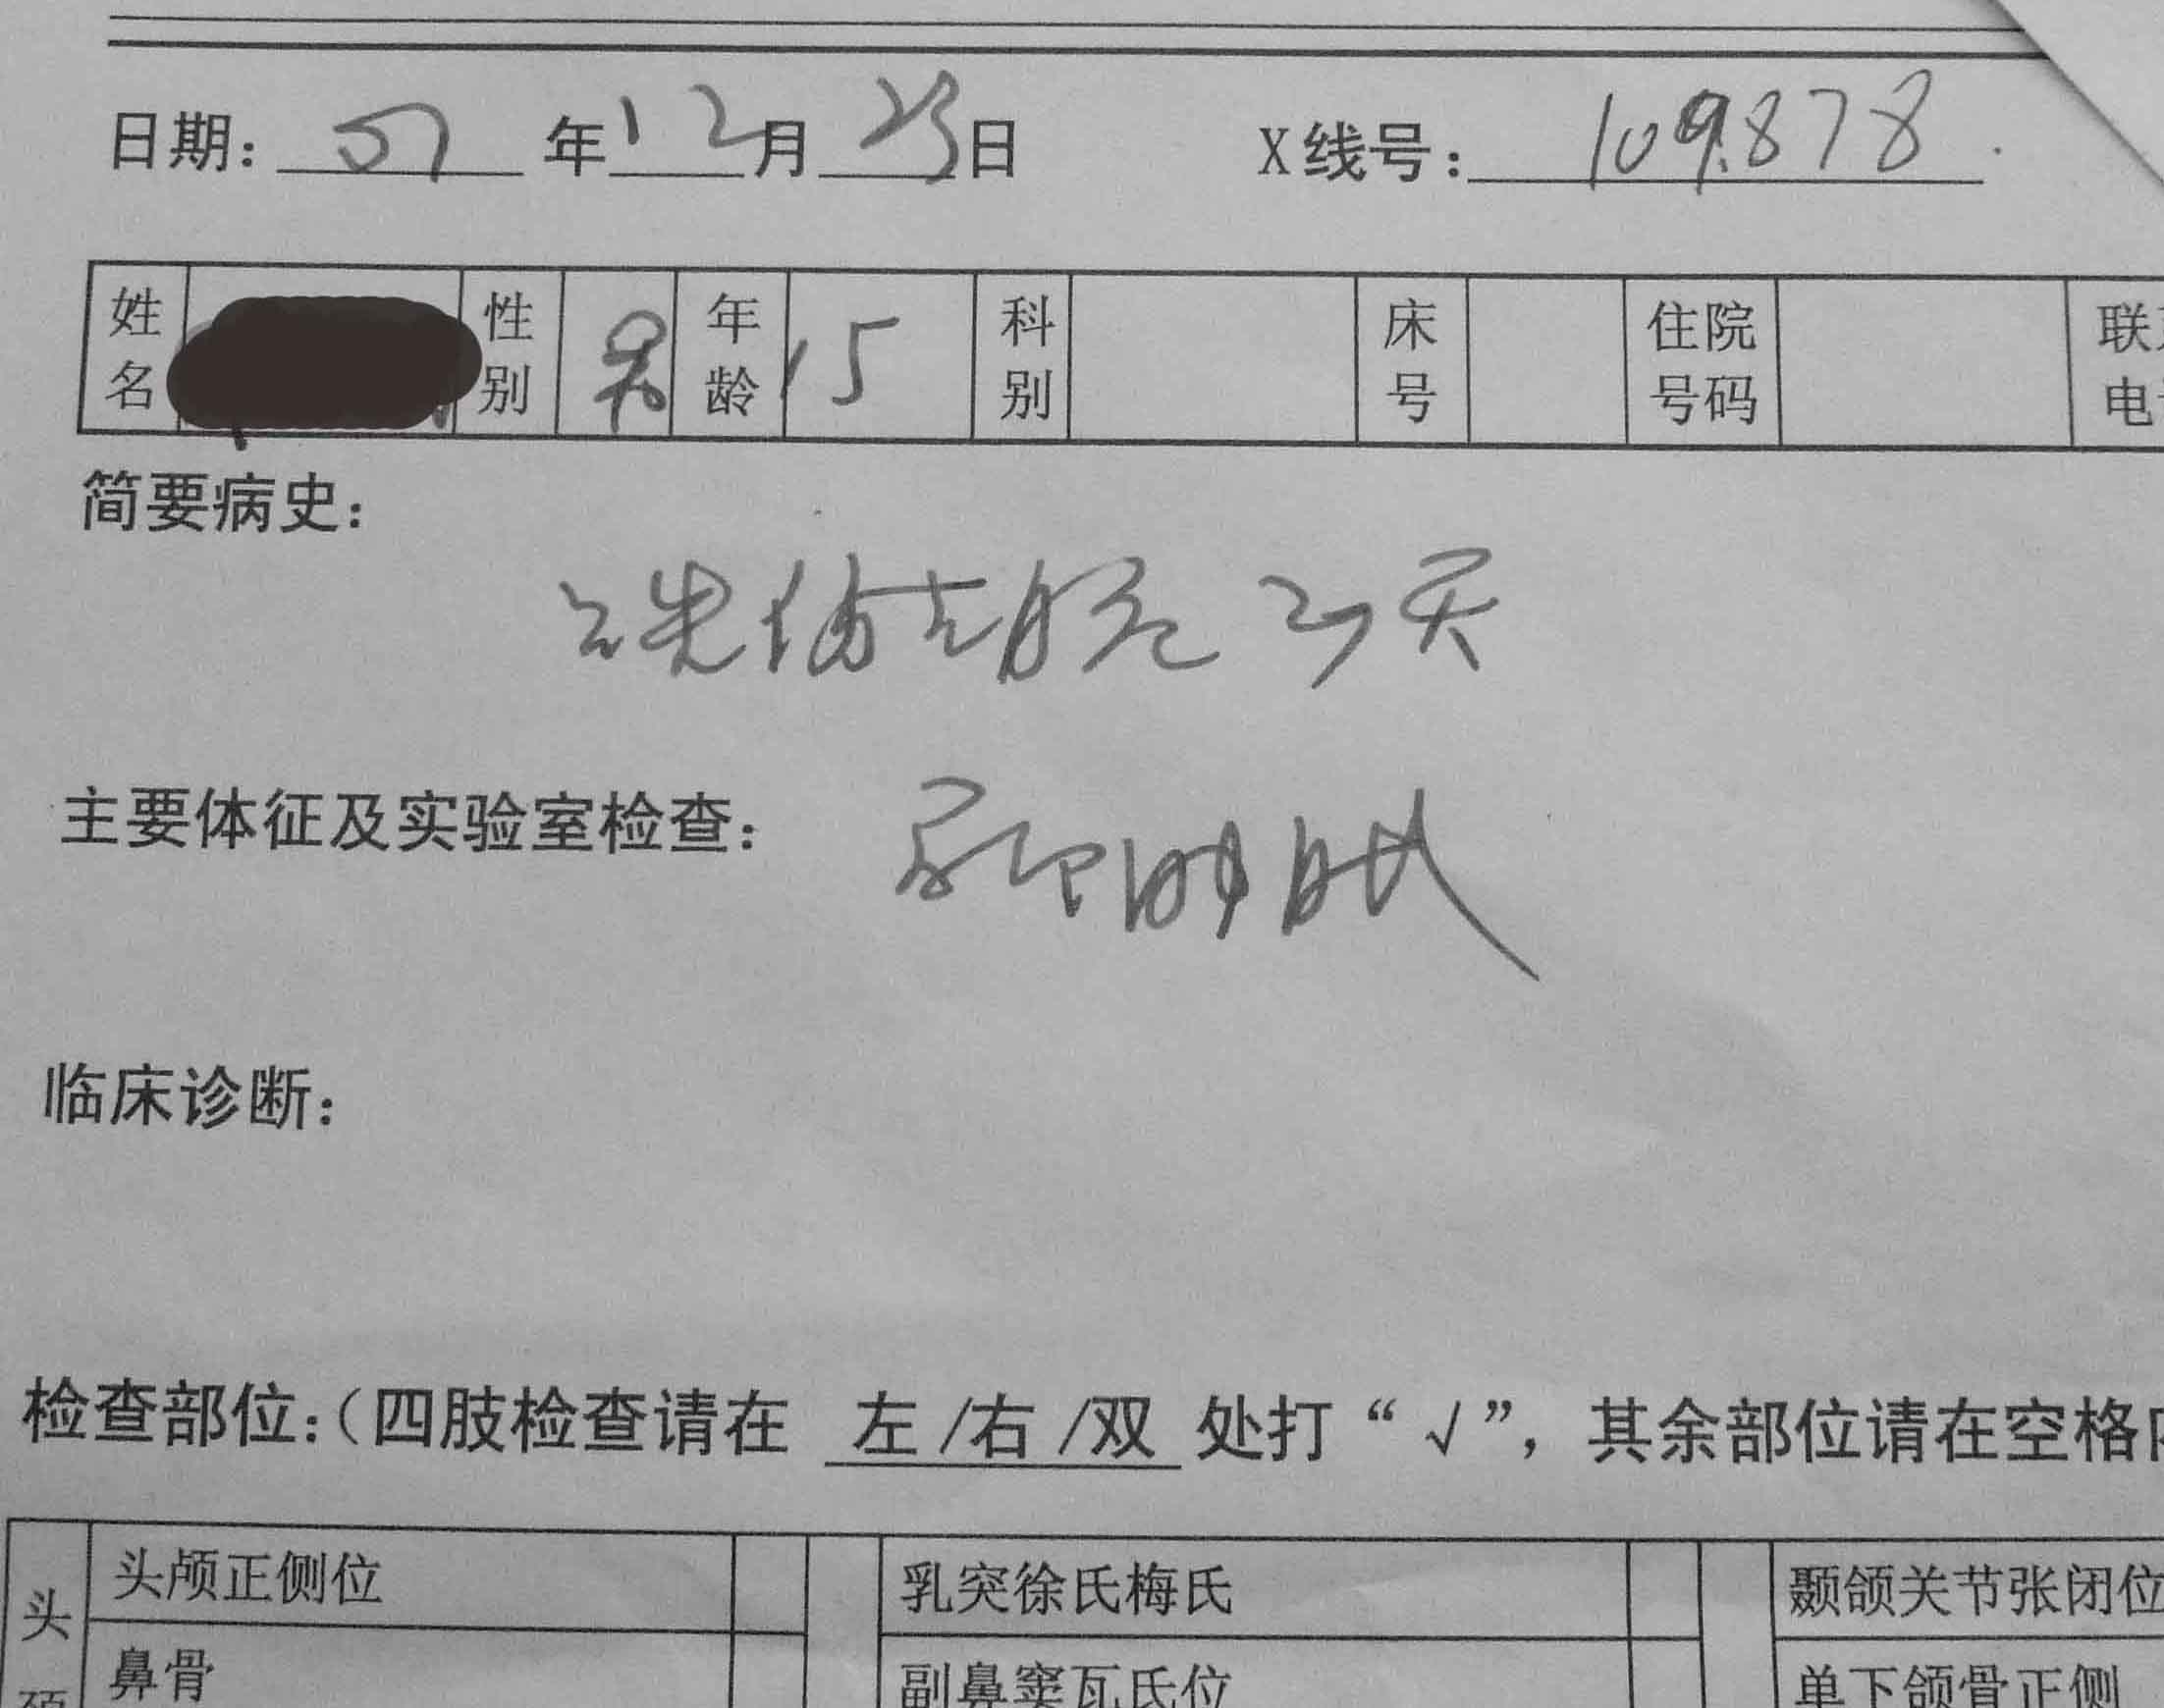 日期: 07 年 12 月 23 日 X线号: 109878
姓名 性别 男 年龄 15 科别 床号 住院号码 联 电
简要病史:
跌伤左腕 2天
主要体征及实验室检查:
临床诊断:
检查部位:(四肢检查请在 左/右/双 处打“√”, 其余部位请在空格
头 头颅正侧位 乳突徐氏梅氏 颞颌关节张闭位
鼻骨 副鼻窦瓦氏位 单下颌骨正侧